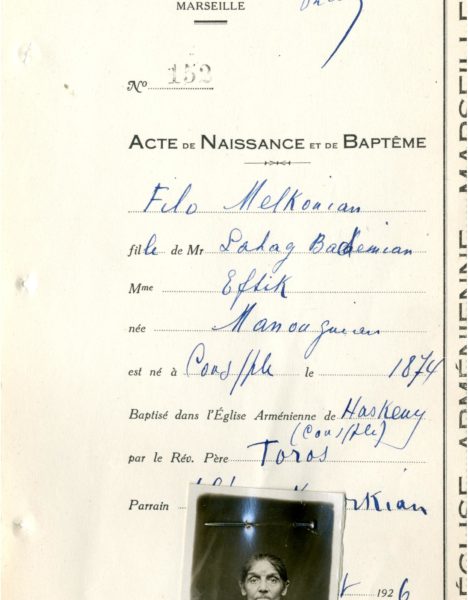 MARSEILLE
No 152
ACTE DE NAISSANCE ET DE BAPTÊME
Filo Melkonian
fille de Mr Sahag Bademian
Mme Eftik
née Manouguian
est né à Cons/ple le 1874
Baptisé dans l'Église Arménienne de Haskeuy
(Cons/ple)
par le Rév. Père Toros
Parrain
1926
ÉGLISE ARMÉNIENNE MARSEILLE